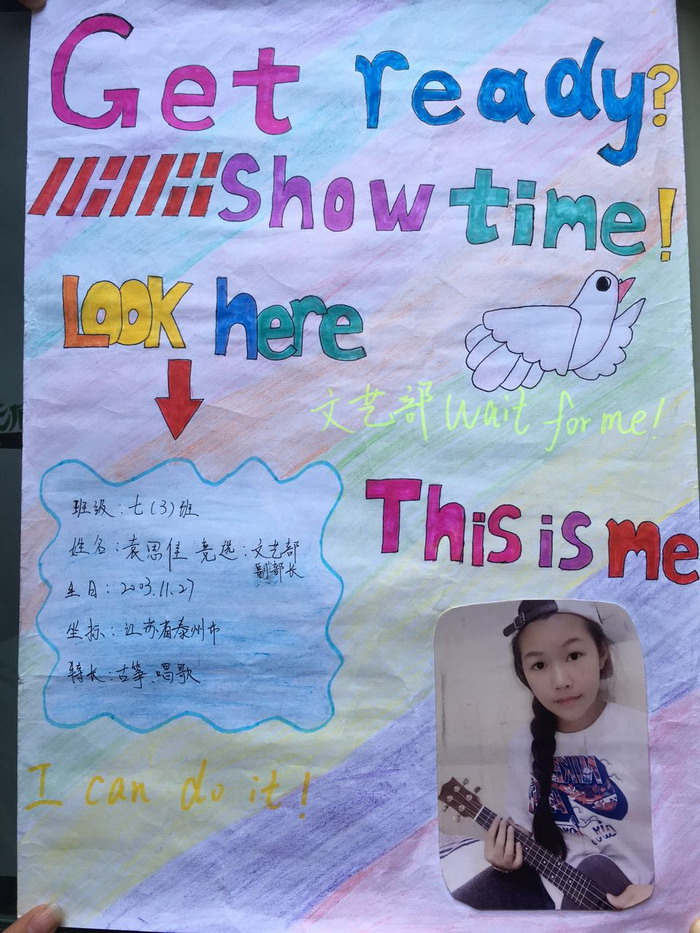 Get ready?
Show time!
Look here
文艺部 Wait for me!
班级：七(3)班
姓名：袁思佳 竞选：文艺部
副部长
生日：2003.11.27
坐标：江苏省泰州市
特长：古筝、唱歌
This is me
I can do it!